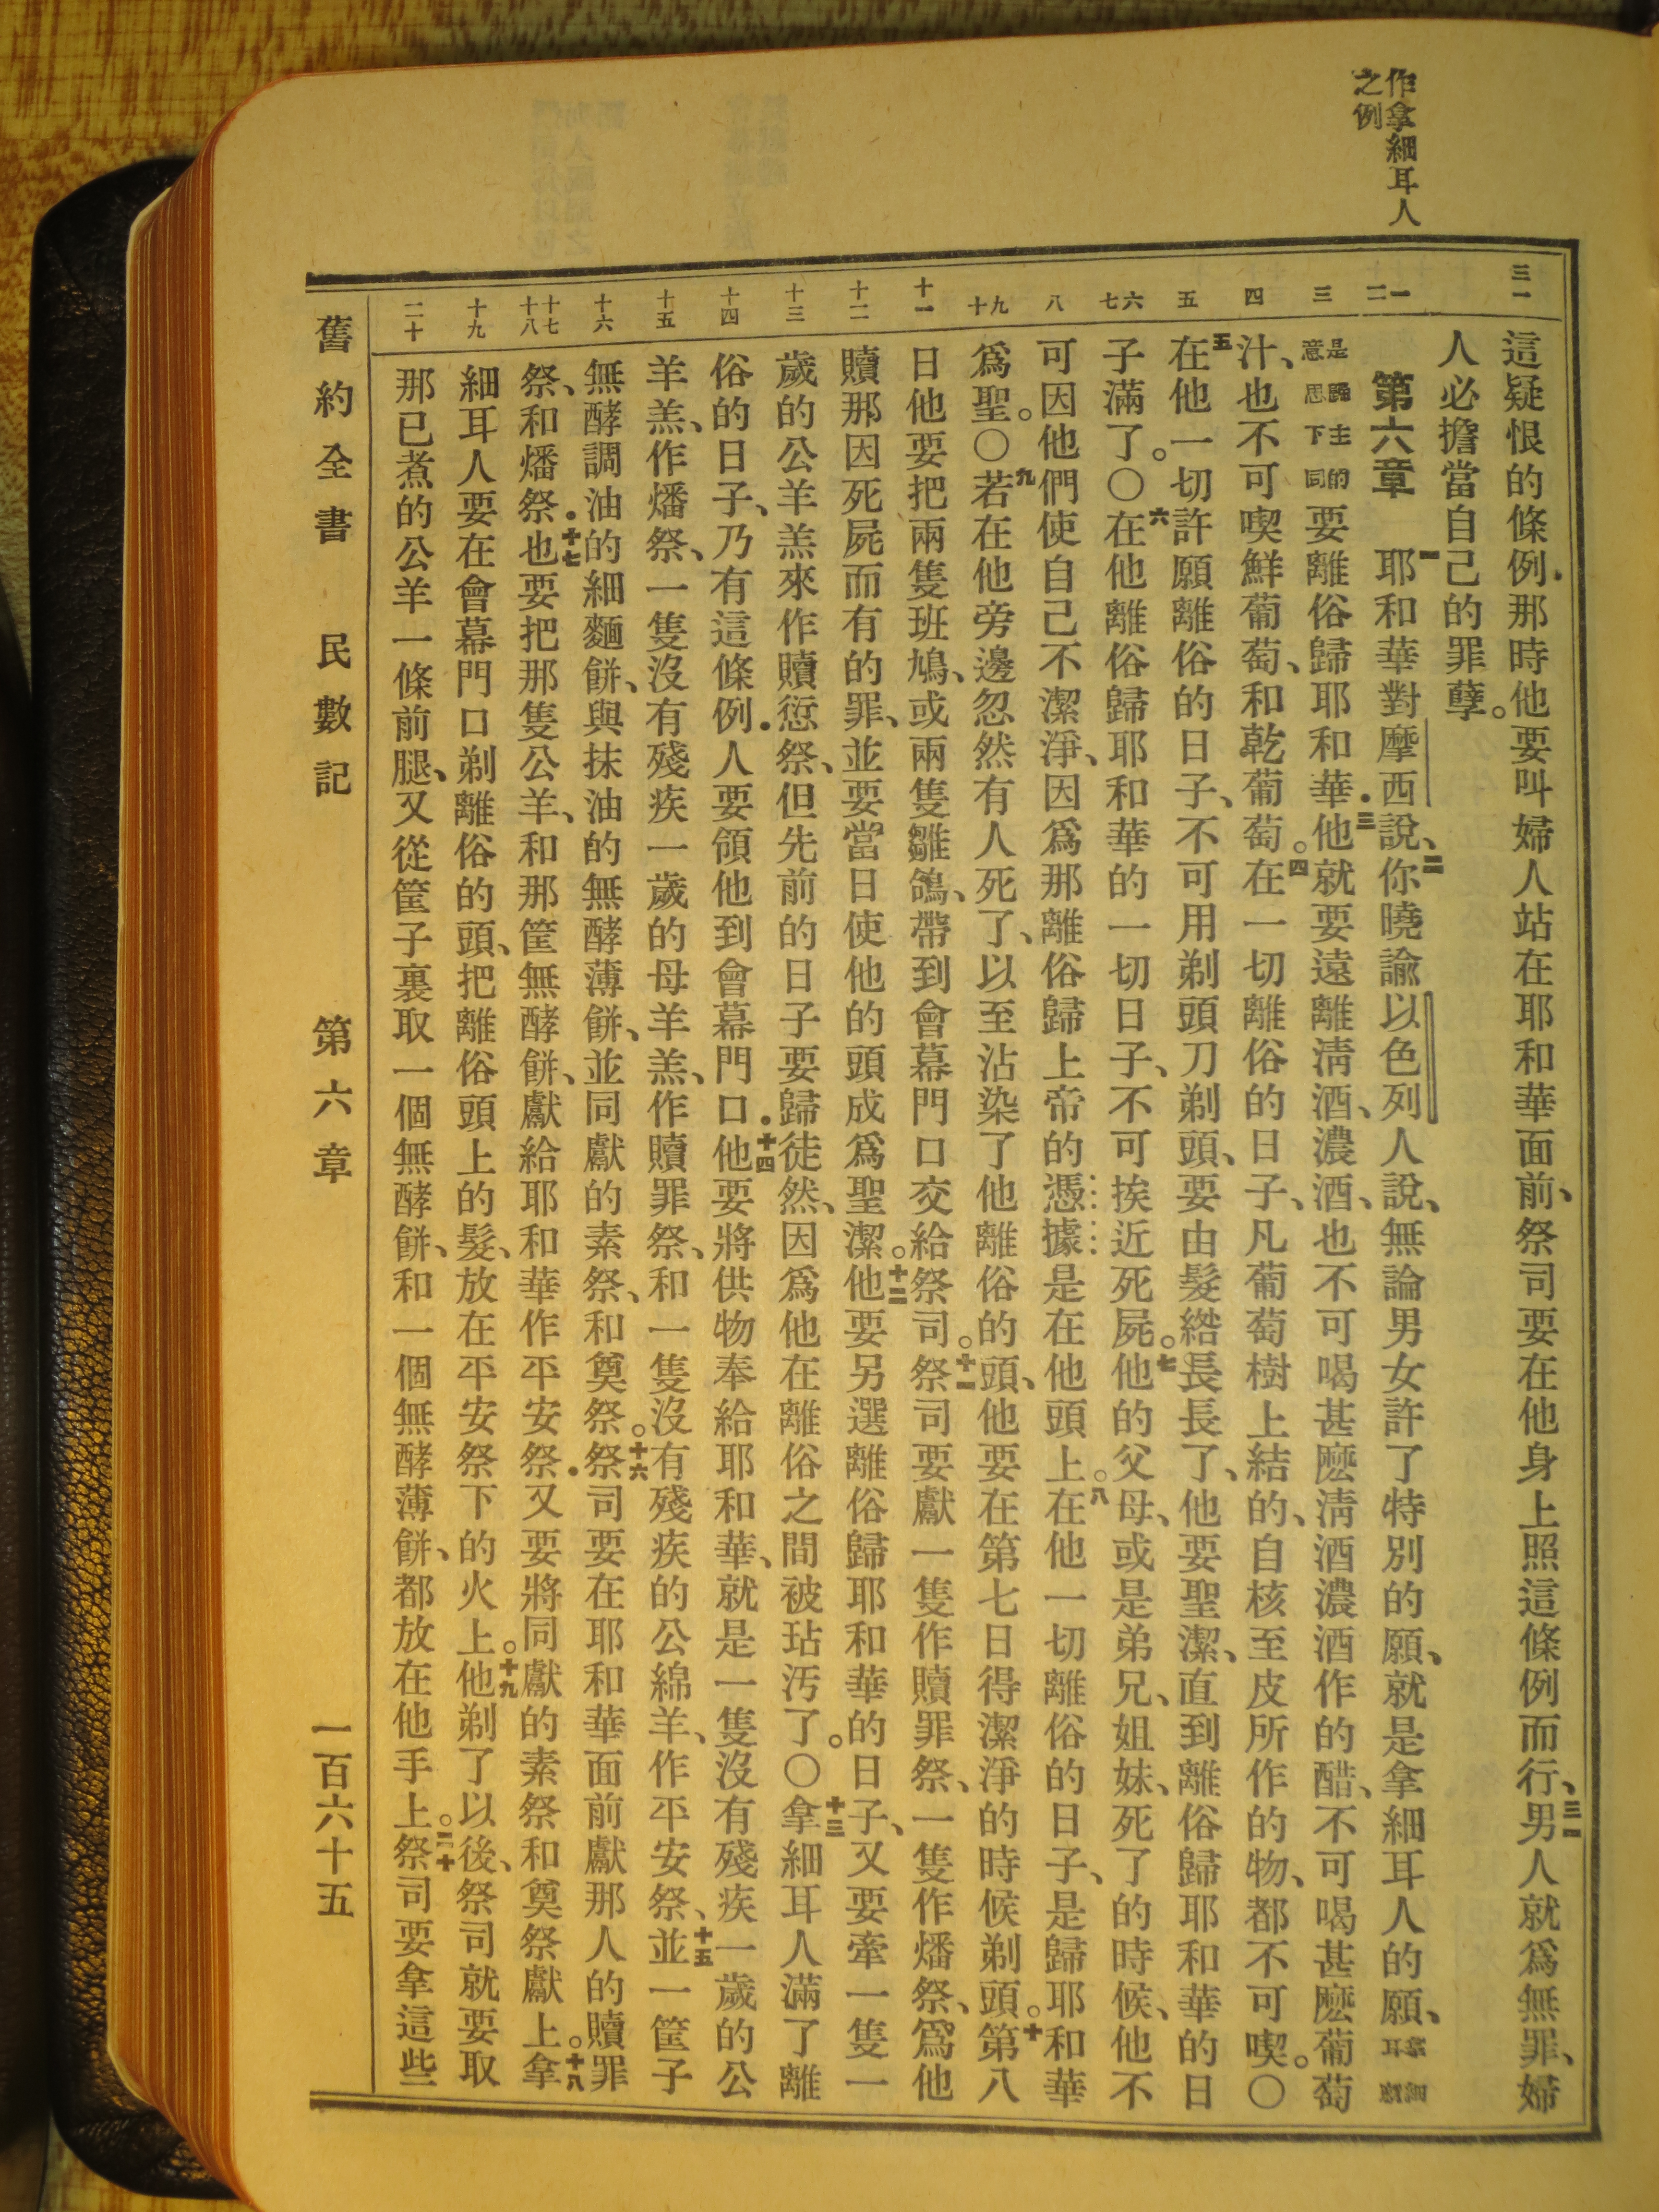 作拿細耳人
之例
三一
一
二
三
四
五
六
七
八
九
十
十一
十二
十三
十四
十五
十六
十七
十八
十九
二十
這疑恨的條例．那時他要叫婦人站在耶和華面前、祭司要在他身上照這條例而行、三一男人就爲無罪、婦
人必擔當自己的罪孽。
第六章　一耶和華對摩西說、二你曉諭以色列人說、無論男女許了特別的願、就是拿細耳人的願、拿細耳願
是歸主的意思下同要離俗歸耶和華．三他就要遠離淸酒、濃酒、也不可喝甚麽淸酒濃酒作的醋、不可喝甚麽葡萄
汁、也不可喫鮮葡萄、和乾葡萄。四在一切離俗的日子、凡葡萄樹上結的、自核至皮所作的物、都不可喫。〇
五在他一切許願離俗的日子、不可用剃頭刀剃頭、要由髮綹長長了、他要聖潔、直到離俗歸耶和華的日
子滿了。〇六在他離俗歸耶和華的一切日子、不可挨近死屍。七他的父母、或是弟兄、姐妹、死了的時候、他不
可因他們使自己不潔淨、因爲那離俗歸上帝的憑據是在他頭上。八在他一切離俗的日子、是歸耶和華
爲聖。〇九若在他旁邊忽然有人死了、以至沾染了他離俗的頭、他要在第七日得潔淨的時候剃頭。十第八
日他要把兩隻班鳩、或兩隻雛鴿、帶到會幕門口交給祭司。十一祭司要獻一隻作贖罪祭、一隻作燔祭、爲他
贖那因死屍而有的罪、並要當日使他的頭成爲聖潔。十二他要另選離俗歸耶和華的日子、又要牽一隻一
歲的公羊羔來作贖愆祭、但先前的日子要歸徒然、因爲他在離俗之間被玷汚了。〇十三拿細耳人滿了離
俗的日子、乃有這條例．人要領他到會幕門口．十四他要將供物奉給耶和華、就是一隻沒有殘疾一歲的公
羊羔、作燔祭、一隻沒有殘疾一歲的母羊羔、作贖罪祭、和一隻沒有殘疾的公綿羊、作平安祭、十五並一筐子
無酵調油的細麵餅、與抹油的無酵薄餅、並同獻的素祭、和奠祭。十六祭司要在耶和華面前獻那人的贖罪
祭、和燔祭．十七也要把那隻公羊、和那筐無酵餅、獻給耶和華作平安祭．又要將同獻的素祭和奠祭獻上。十八拿
細耳人要在會幕門口剃離俗的頭、把離俗頭上的髮、放在平安祭下的火上。十九他剃了以後、祭司就要取
那已煮的公羊一條前腿、又從筐子裏取一個無酵餅、和一個無酵薄餅、都放在他手上。二十祭司要拿這些
舊約全書　民數記　第六章　一百六十五